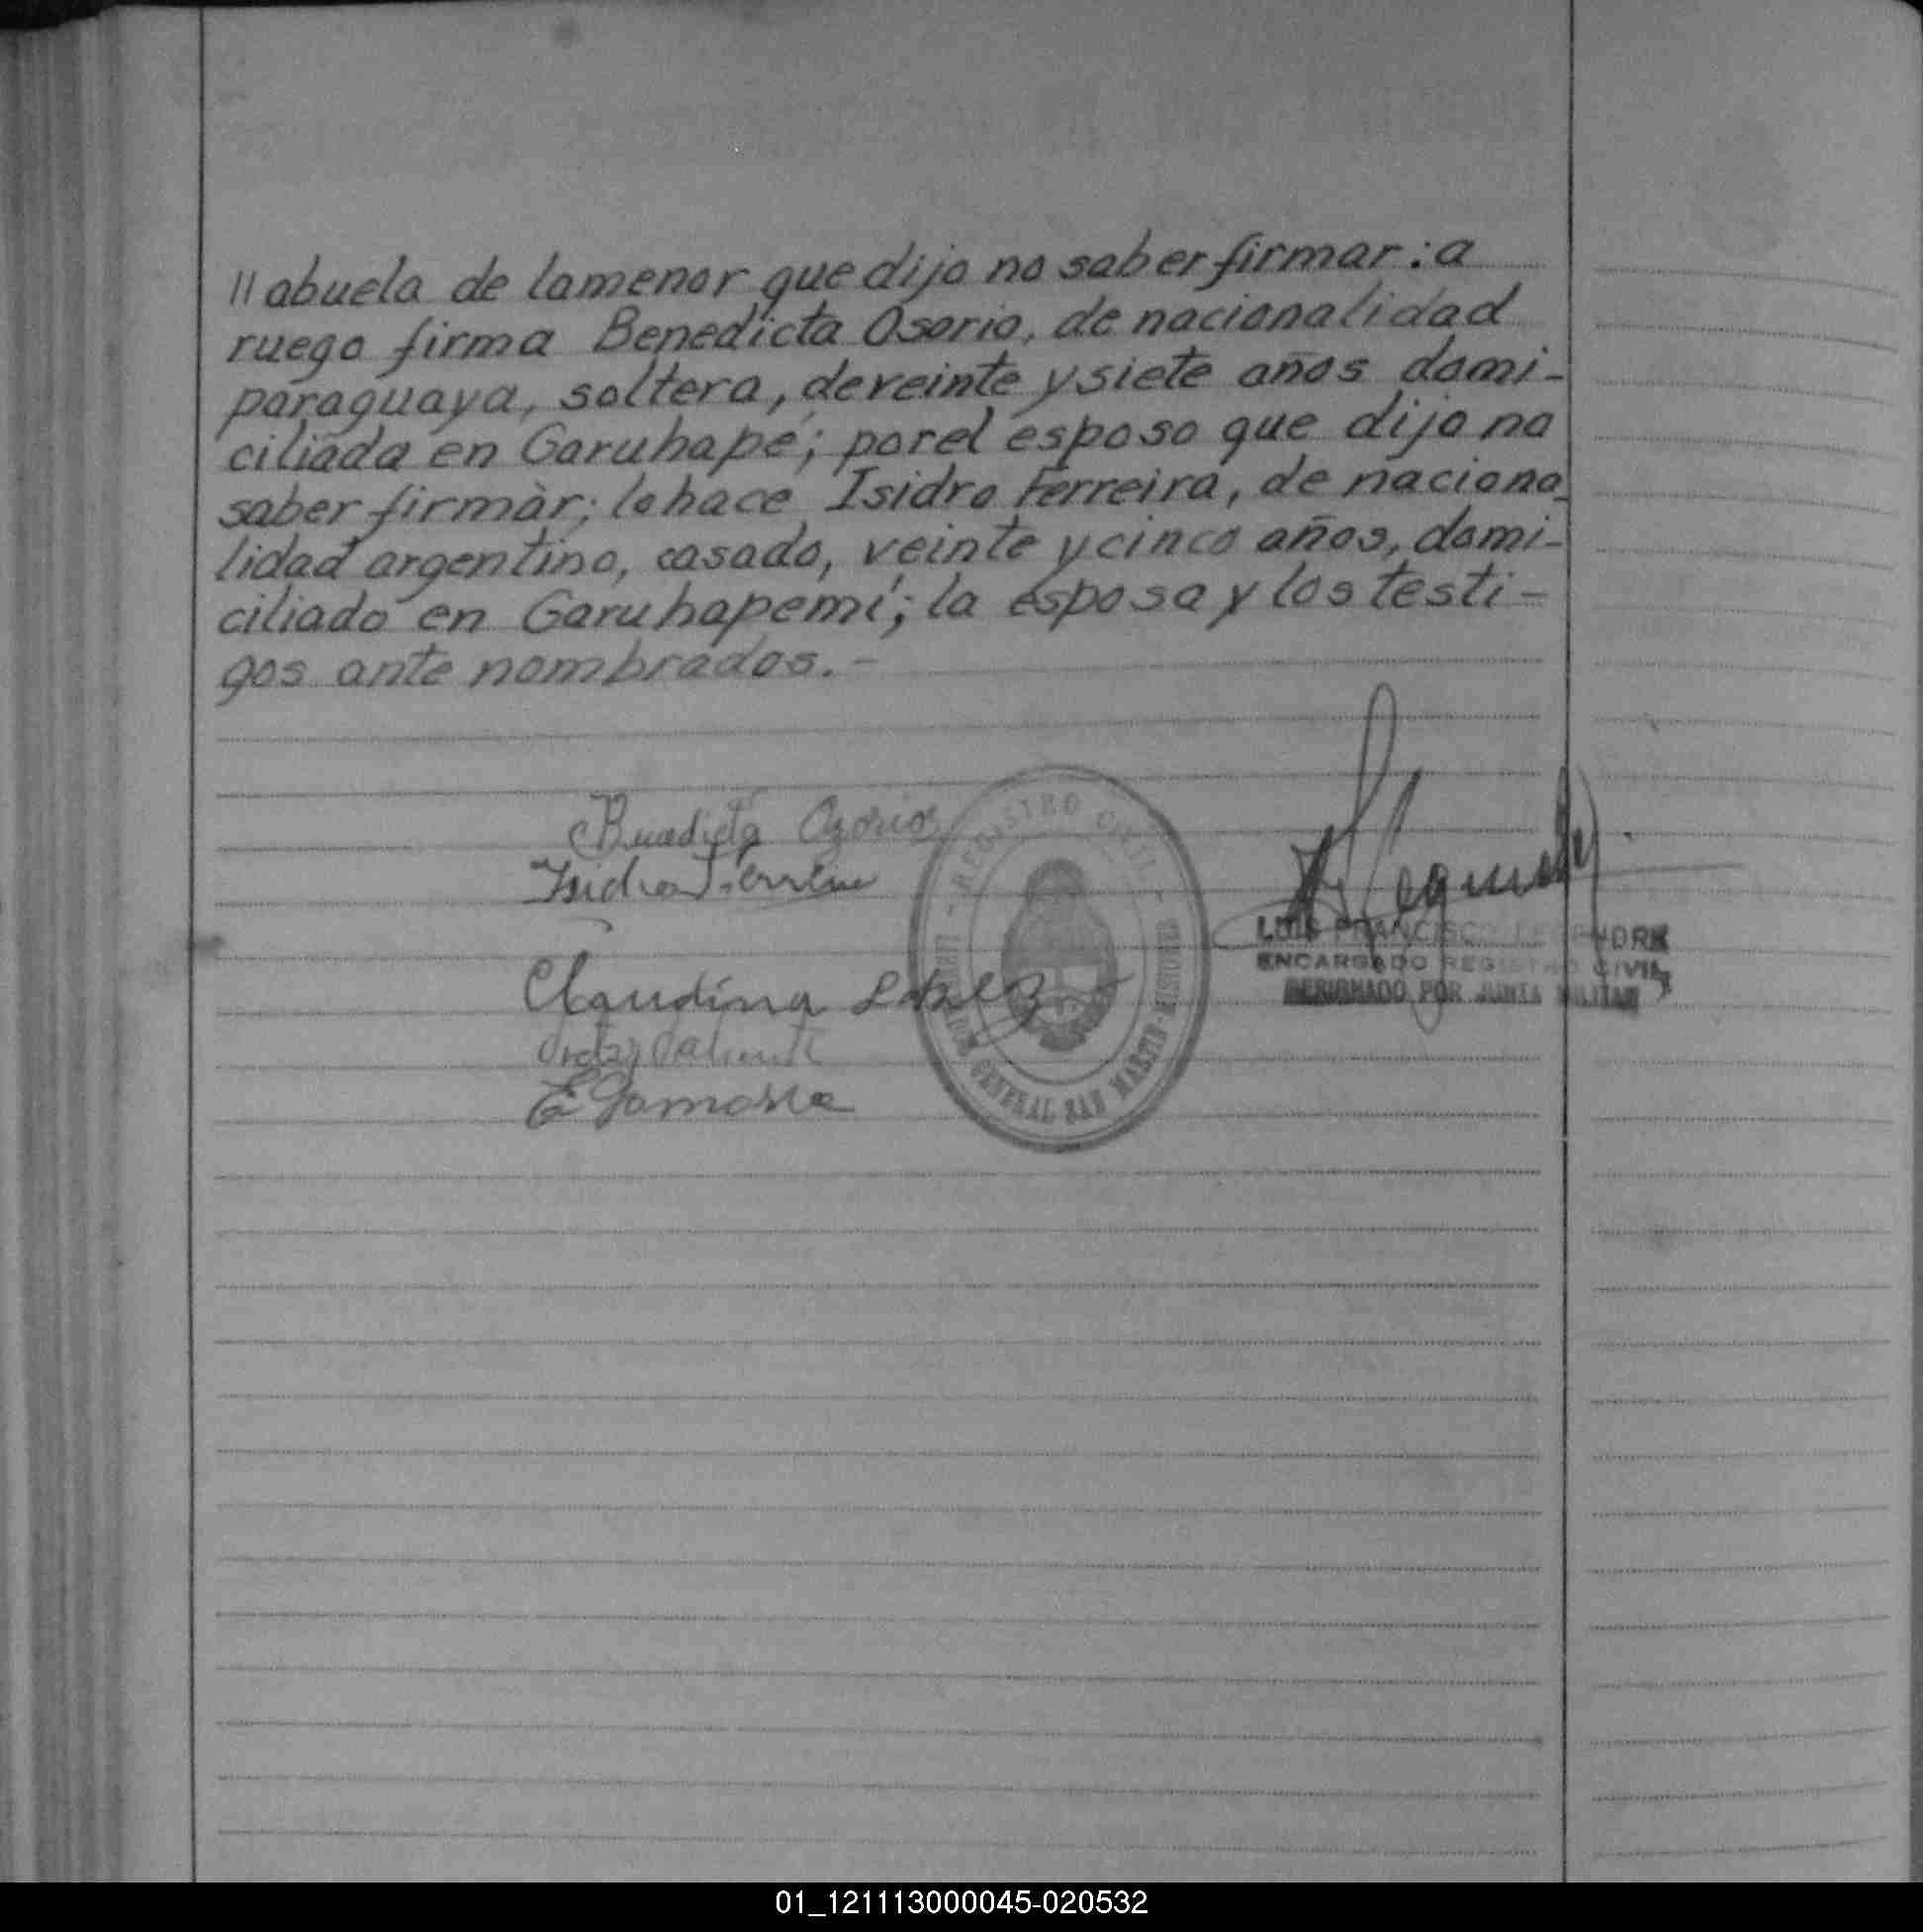 // abuela de la menor que dijo no saber firmar: a
ruego firma Benedicta Osorio, de nacionalidad
paraguaya, soltera, de veinte y siete años domi-
ciliada en Garuhapé; por el esposo que dijo no
saber firmar; lo hace Isidro Ferreira, de naciona-
lidad argentino, casado, veinte y cinco años, domi-
ciliado en Garuhapemí; la esposa y los testi-
gos ante nombrados.-
Benedicta Ozorios
Isidro Ferreira
Claudina Lopez
E Gamarra
- REGISTRO CIVIL -
GENERAL SAN MARTIN - MISIONES
LUIS FRANCISCO
ENCARGADO REGISTRO CIVIL
DESIGNADO POR JUNTA MILITAR
01_121113000045-020532